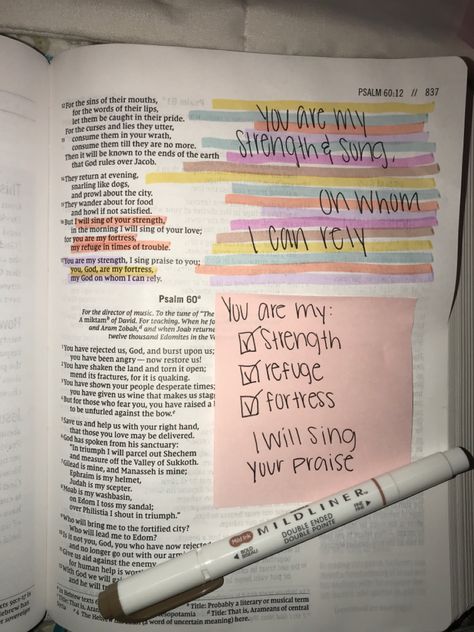 PSALM 60:12 // 837
12 For the sins of their mouths,
for the words of their lips,
let them be caught in their pride.
For the curses and lies they utter,
13 consume them in your wrath,
consume them till they are no more.
Then it will be known to the ends of the earth
that God rules over Jacob.
14 They return at evening,
snarling like dogs,
and prowl about the city.
15 They wander about for food
and howl if not satisfied.
16 But I will sing of your strength,
in the morning I will sing of your love;
for you are my fortress,
my refuge in times of trouble.
17 You are my strength, I sing praise to you;
you, God, are my fortress,
my God on whom I can rely.
You are my
Strength & Song,
on whom
I can rely
Psalm 60
For the director of music. To the tune of "The
A miktam of David. For teaching. When he fo
and Aram Zobah, and when Joab returne
twelve thousand Edomites in the V
1 You have rejected us, God, and burst upon us;
you have been angry — now restore us!
2 You have shaken the land and torn it open;
mend its fractures, for it is quaking.
3 You have shown your people desperate times;
you have given us wine that makes us stag
4 But for those who fear you, you have raised a
to be unfurled against the bow.
5 Save us and help us with your right hand,
that those you love may be delivered.
6 God has spoken from his sanctuary:
"In triumph I will parcel out Shechem
and measure off the Valley of Sukkoth.
7 Gilead is mine, and Manasseh is mine;
Ephraim is my helmet,
Judah is my scepter.
8 Moab is my washbasin,
on Edom I toss my sandal;
over Philistia I shout in triumph."
9 Who will bring me to the fortified city?
Who will lead me to Edom?
10 Is it not you, God, you who have now rejected
and no longer go out with our arm
11 Give us aid against the enemy,
for human help is wor
12 With God we will ga
and he will tr
You are my:
Strength
refuge
fortress
I will sing
your praise
Mild Ink MILDLINER
DOUBLE ENDED
DOUBLE POINTE
BOLD
FINE
Title: Probably a literary or musical term
Title: That is, Arameans of central
(a word of uncertain meaning) here.